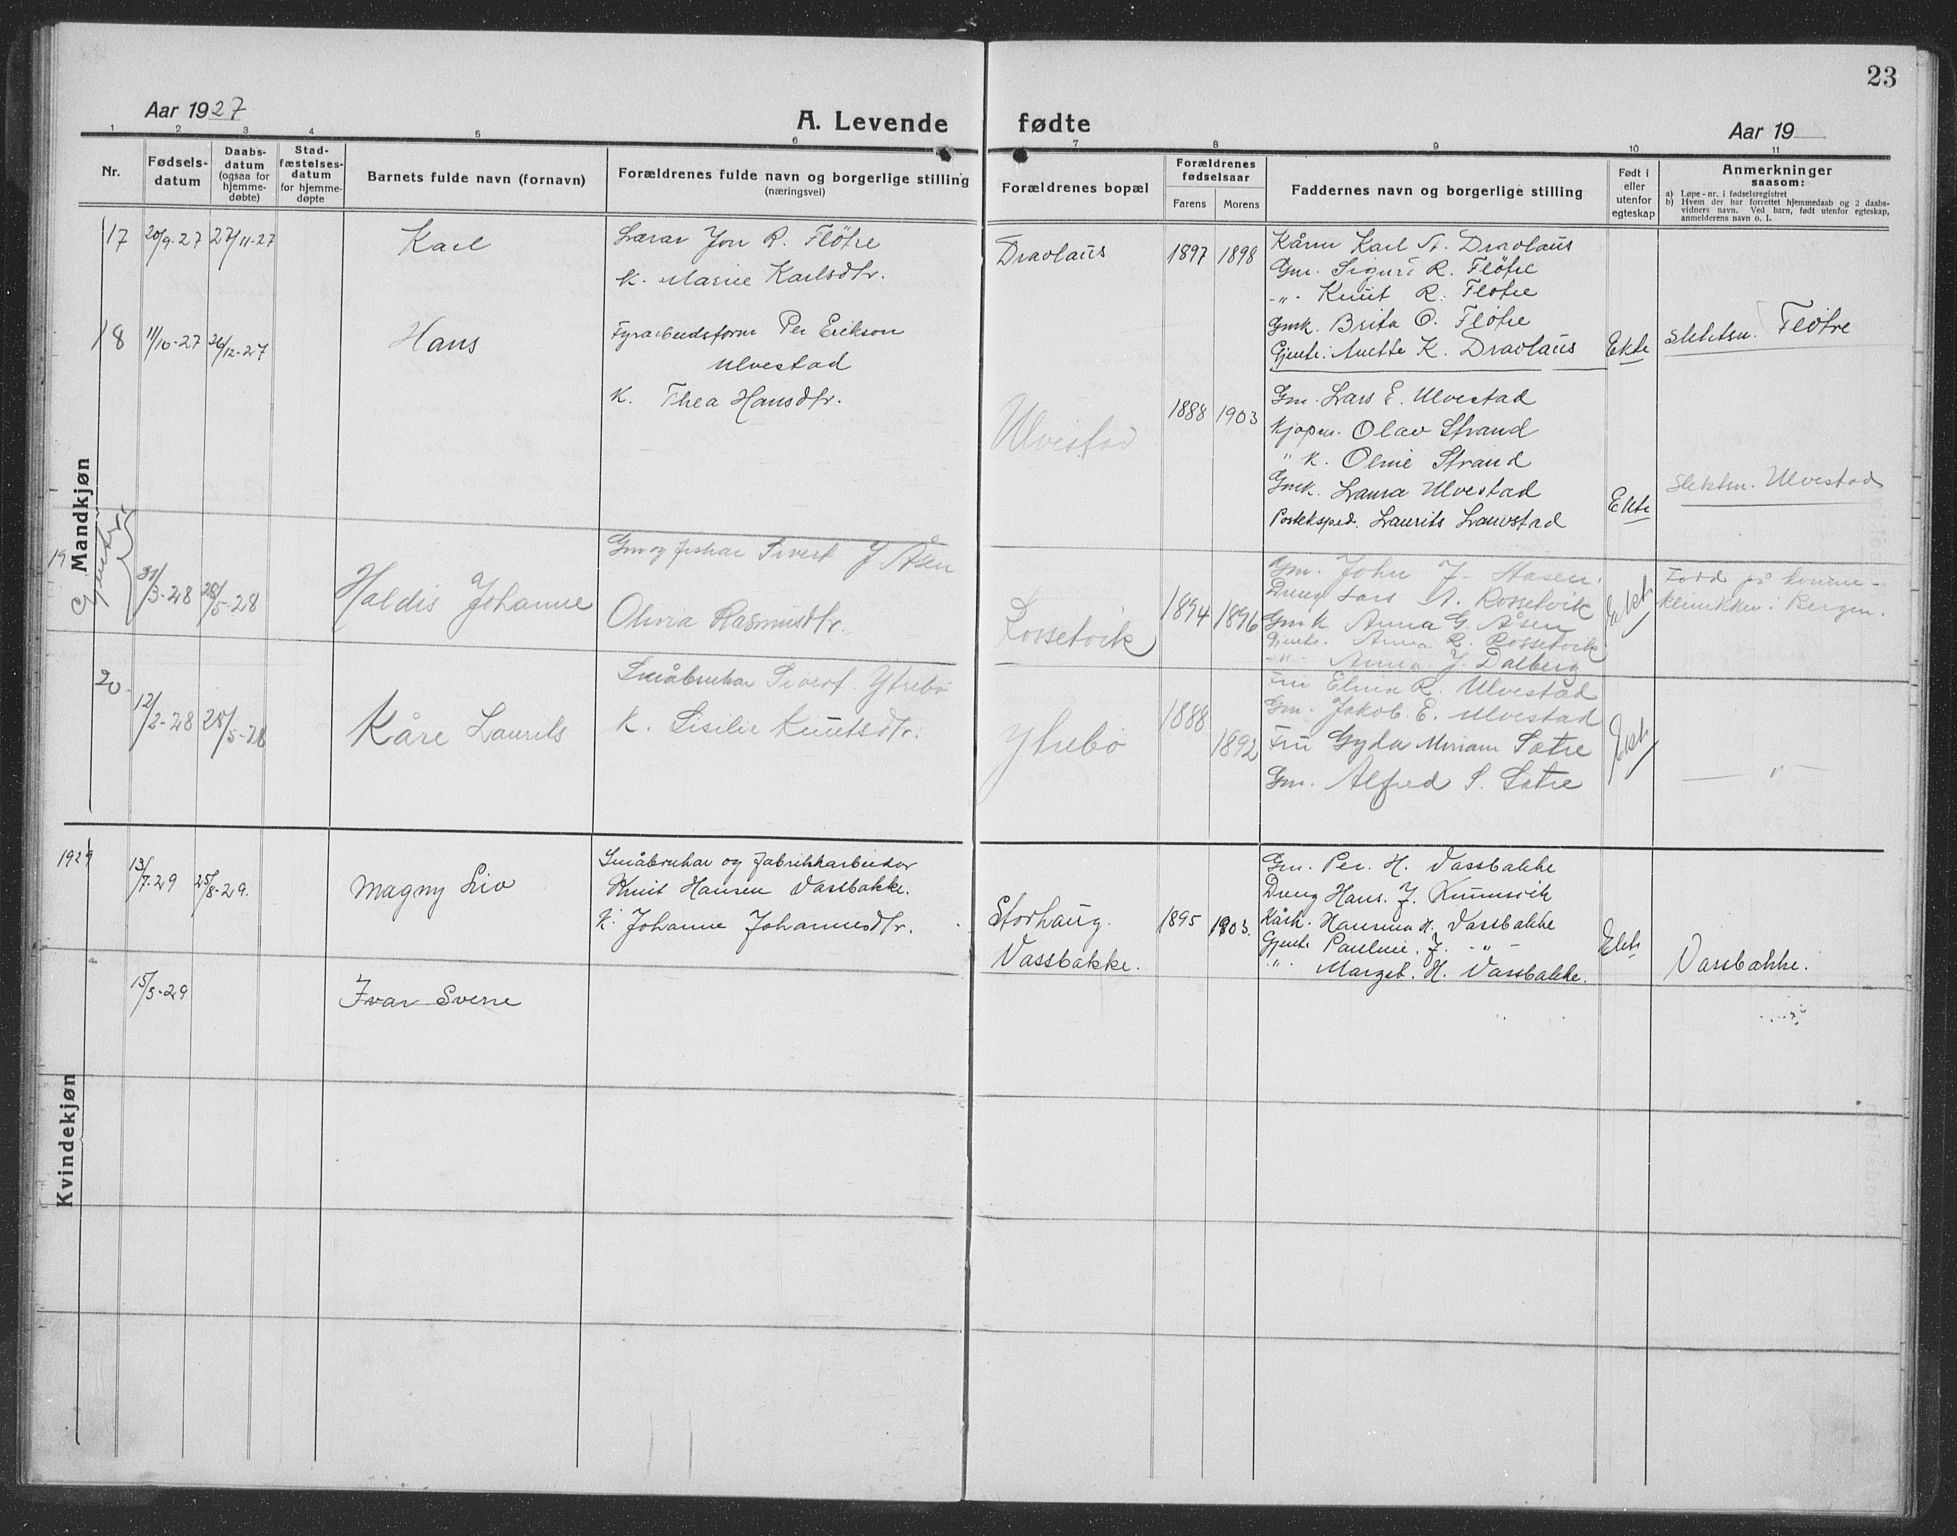 23
Aar 1927
A. Levende fødte
Aar 19
1 2 3 4 5 6 7 8 9 10 11
Nr.
Fødsels-
datum
Daabs-
datum
(ogsaa for
hjemme-
døbte)
Stad-
fæstelses-
datum
for hjemme-
døpte
Barnets fulde navn (fornavn)
Forældrenes fulde navn og borgerlige stilling
(næringsvei)
Forældrenes bopæl
Forældrenes
fødselsaar
Farens Morens
Faddernes navn og borgerlige stilling
Født i
eller
utenfor
egteskap
Anmerkninger
saasom:
a) Løpe-nr. i fødselsregistret
b) Hvem der har forrettet hjemmedaab og 2 daabs-
vidners navn. Ved barn, født utenfor egteskap,
anmelderens navn o. l.
Mandkjøn
17 20/9-27 27/11-27 Karl
Lærar Jon R. Fløtre
K. Marie Karlsdtr.
Dravlaus 1897 1898
Kårm Karl A. Dravlaus
Gm. Sigurd R. Fløtre
-"- Knut R. Fløtre
Gmk. Brita O. Fløtre
Gjente: Anette K. Dravlaus
Ekte
Fløtre
18 11/10-27 26/12-27 Hans
Per Erikson
Ulvestad
K. Thea Hansdtr.
Ulvestad 1888 1903
Gm. Lars E. Ulvestad
Kjøpm. Olav Strand
" K. Oline Strand
Gmk. Laura Ulvestad
Posteksped. Laurits Lauvstad
Ekte
Slektsn. Ulvestad
19 31/3-28 28/5-28 Haldis Johanne
Gm og fiskar Sivert J Åsen
Olivia Rasmusdtr.
Rossetvik 1894 1896
Gm. John J. Aasen.
Dreng Lars A. Rossetvik
Gmk Anna G. Åsen
Gjente. Anna R. Rossetvik
-"- Anna J. Dalberg
Ekt.
Fødd på kvinne-
klinikken i Bergen.
20 12/2-28 28/5-28 Kåre Laurits
Småbrukar Sivert Ytrebø
K. Sisilie Knutsdtr.
Ytrebø 1888 1892
Fru Elina R. Ulvestad
Gm. Jakob. E. Ulvestad
Fru Gyda Miriam Sætre
Gm. Alfred S. Sætre
Ekt.
— " —
Kvindekjøn
1929 13/7-29 25/8-29. Magny Liv
Småbrukar og fabrikkarbeidar
Knut Hansen Vassbakke.
K. Johanne Johannesdtr.
Storhaug.
Vassbakke.
1895 1903.
Gm. Per. H. Vassbakke
Dreng Hans. J.
Kårk. Hansina H. Vassbakke
Gjente Pauline. J. -"-
" Marget. H. Vassbakke.
Ekte
Vassbakke.
15/5-29 Ivar Sverre